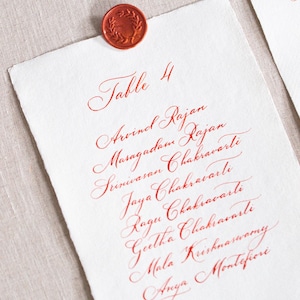 Table 4
Arvind Rajan
Masagadam Rajan
Srinivasan Chakravarti
Jaya Chakravarti
Ragu Chakravarti
Geetha Chakravarti
Mala Krishnaswamy
Anya Montefiori